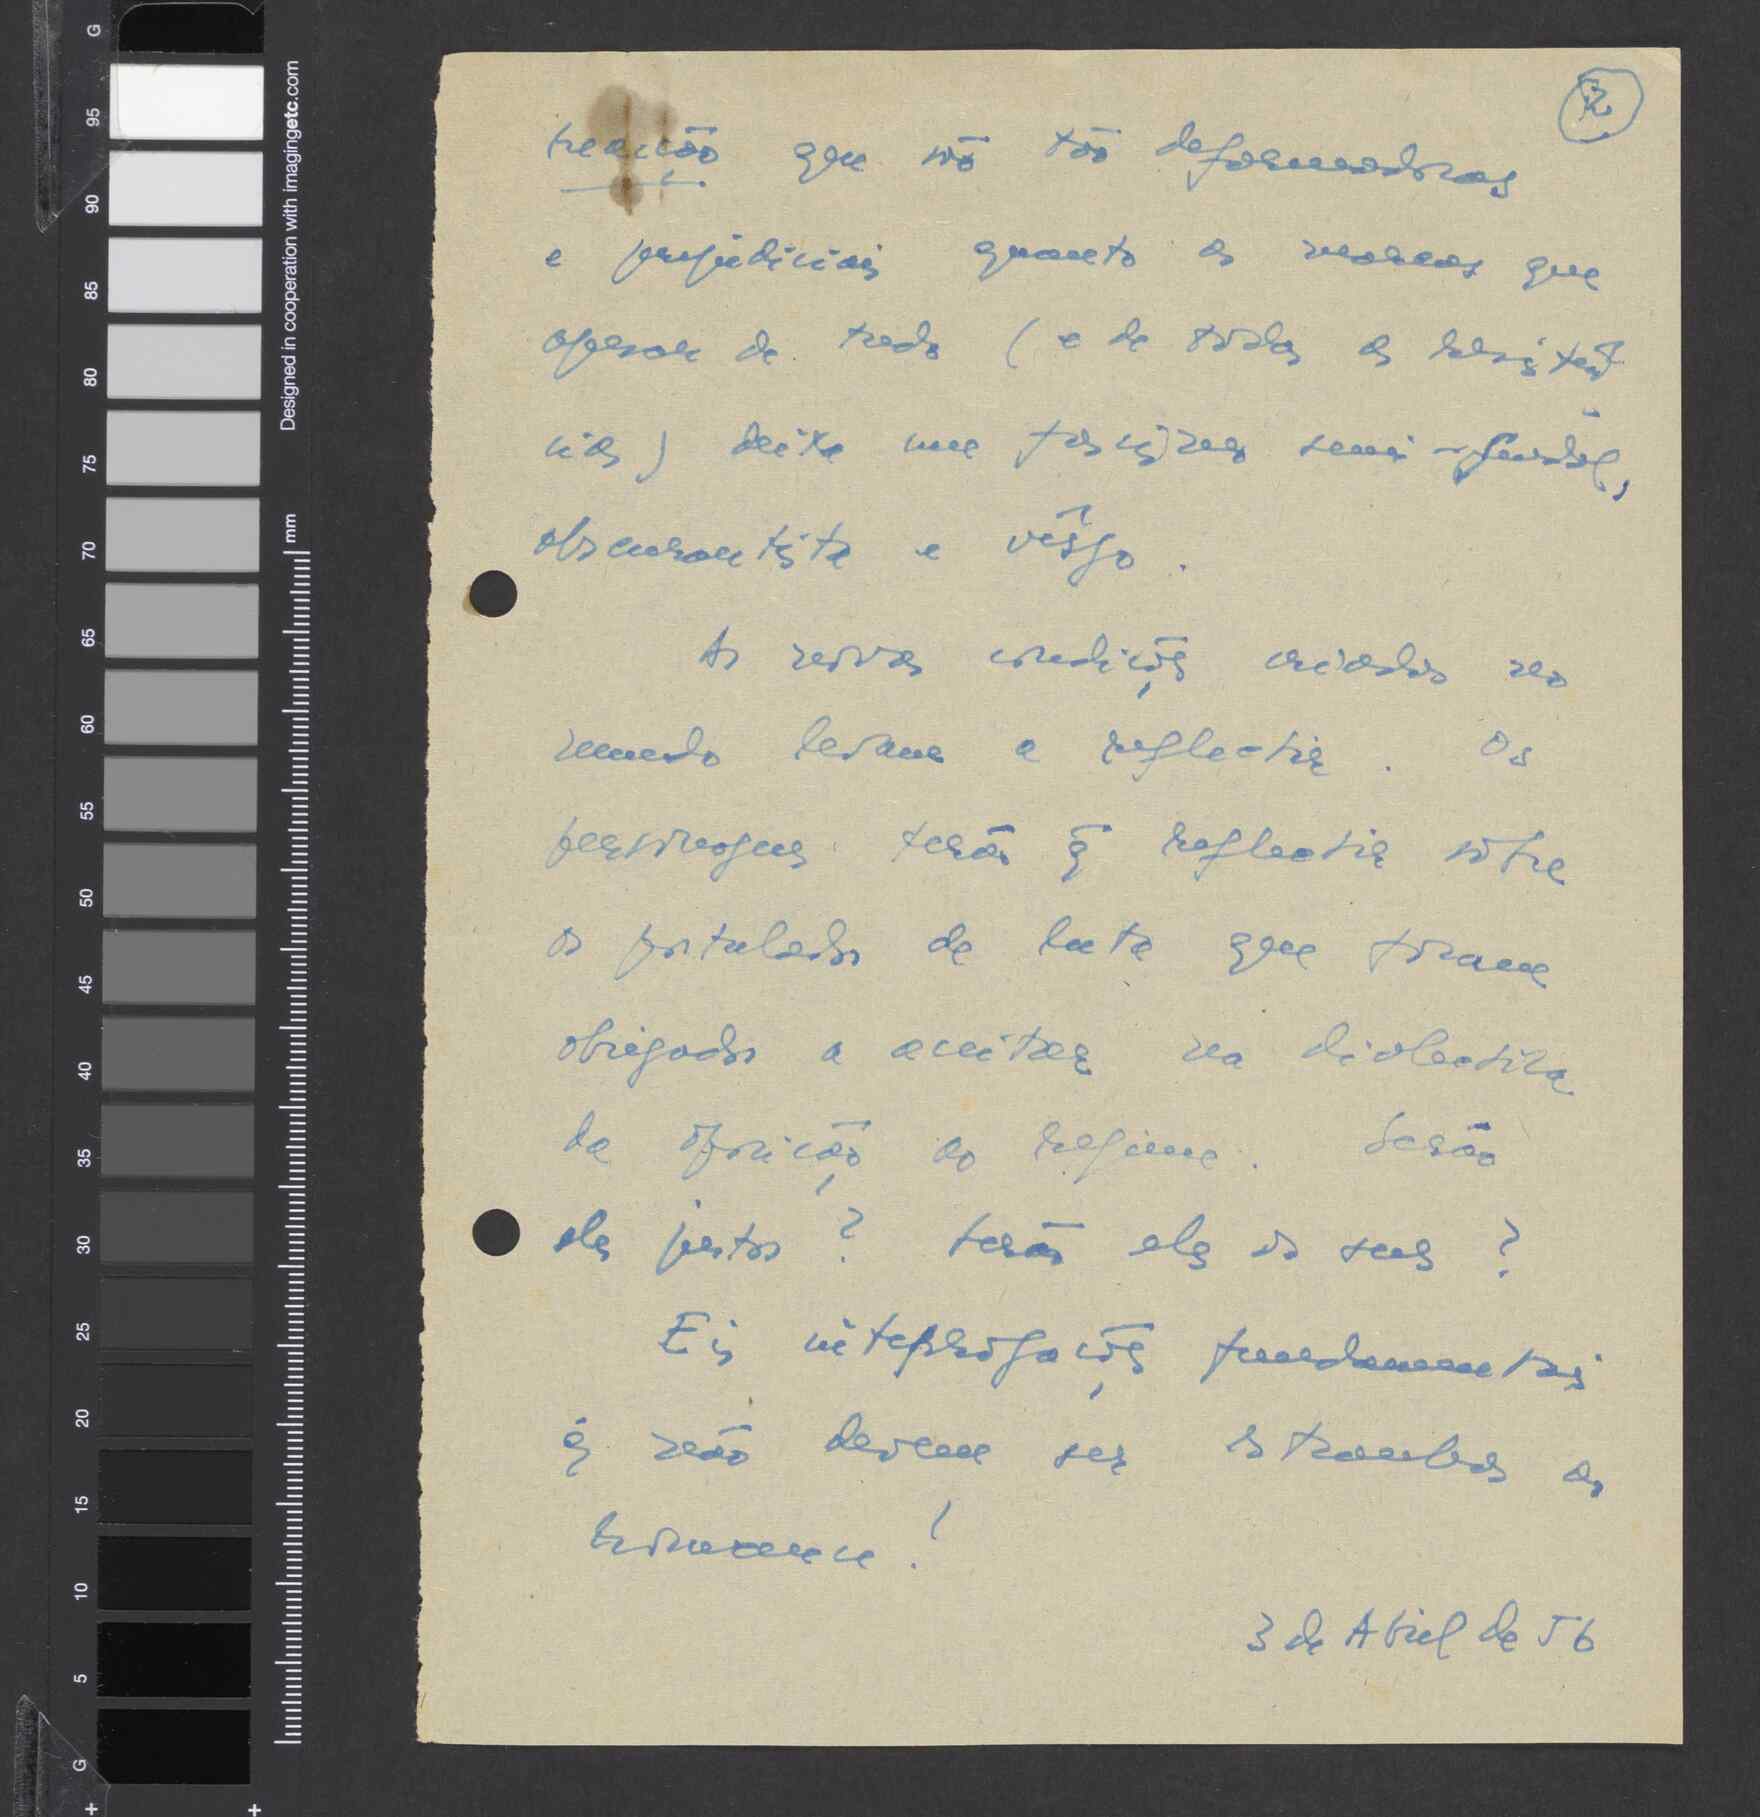 2
reacção que são tão deformadoras
e prejudiciais quanto as marcas que
apesar de tudo (e de todas as resistên
cias) deixa um fascismo semi-feudal,
obscurantista e vêsgo.
As novas condições criadas no
mundo levam a reflectir. Os
personagens terão q̃ reflectir sôbre
os postulados de luta que foram
obrigados a aceitar na dialectica
da oposição ao regime. Serão
eles justos? Serão eles os seus?
Eis interrogações fundamentais
q̃ não devem ser estranhas ao
romance!
3 de Abril de 56
Designed in cooperation with imagingetc.com
mm
G
95
90
85
80
75
70
65
60
55
50
45
40
35
30
25
20
15
10
5
G